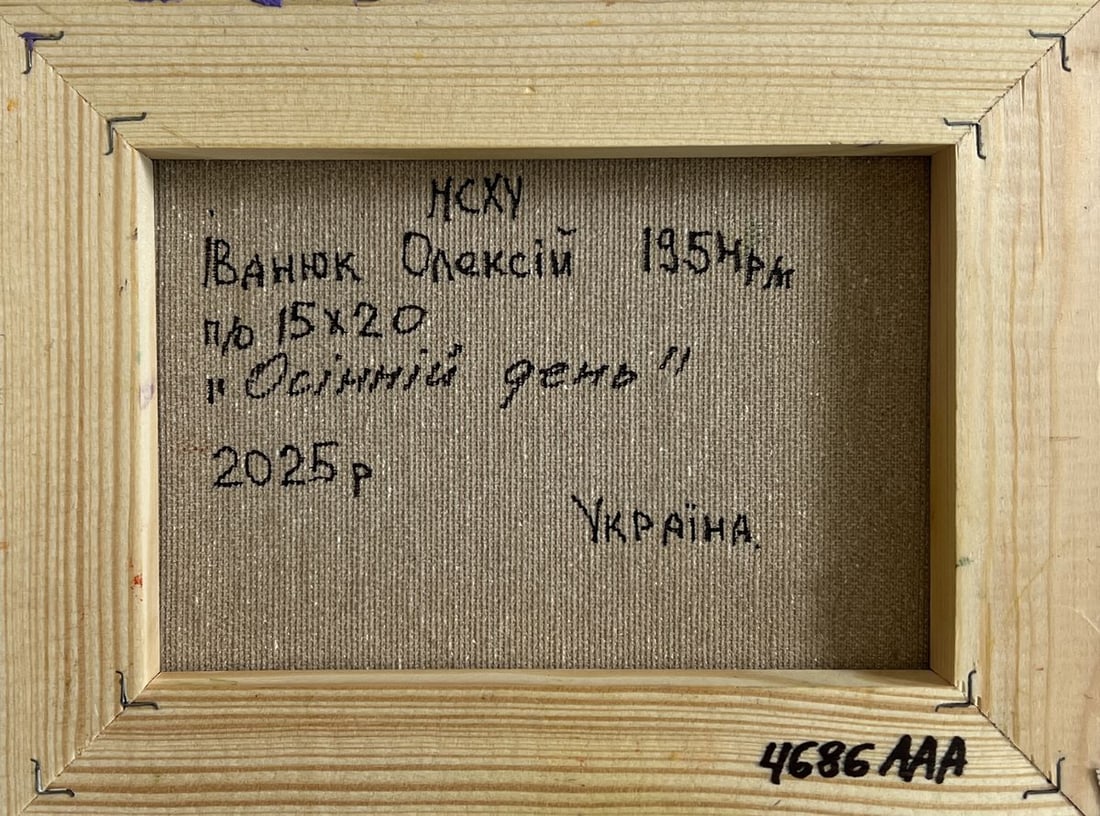 НСХУ
Іванюк Олексій 1954р/н
п/о 15х20
"Осінній день"
2025р
Україна.
4686ААА